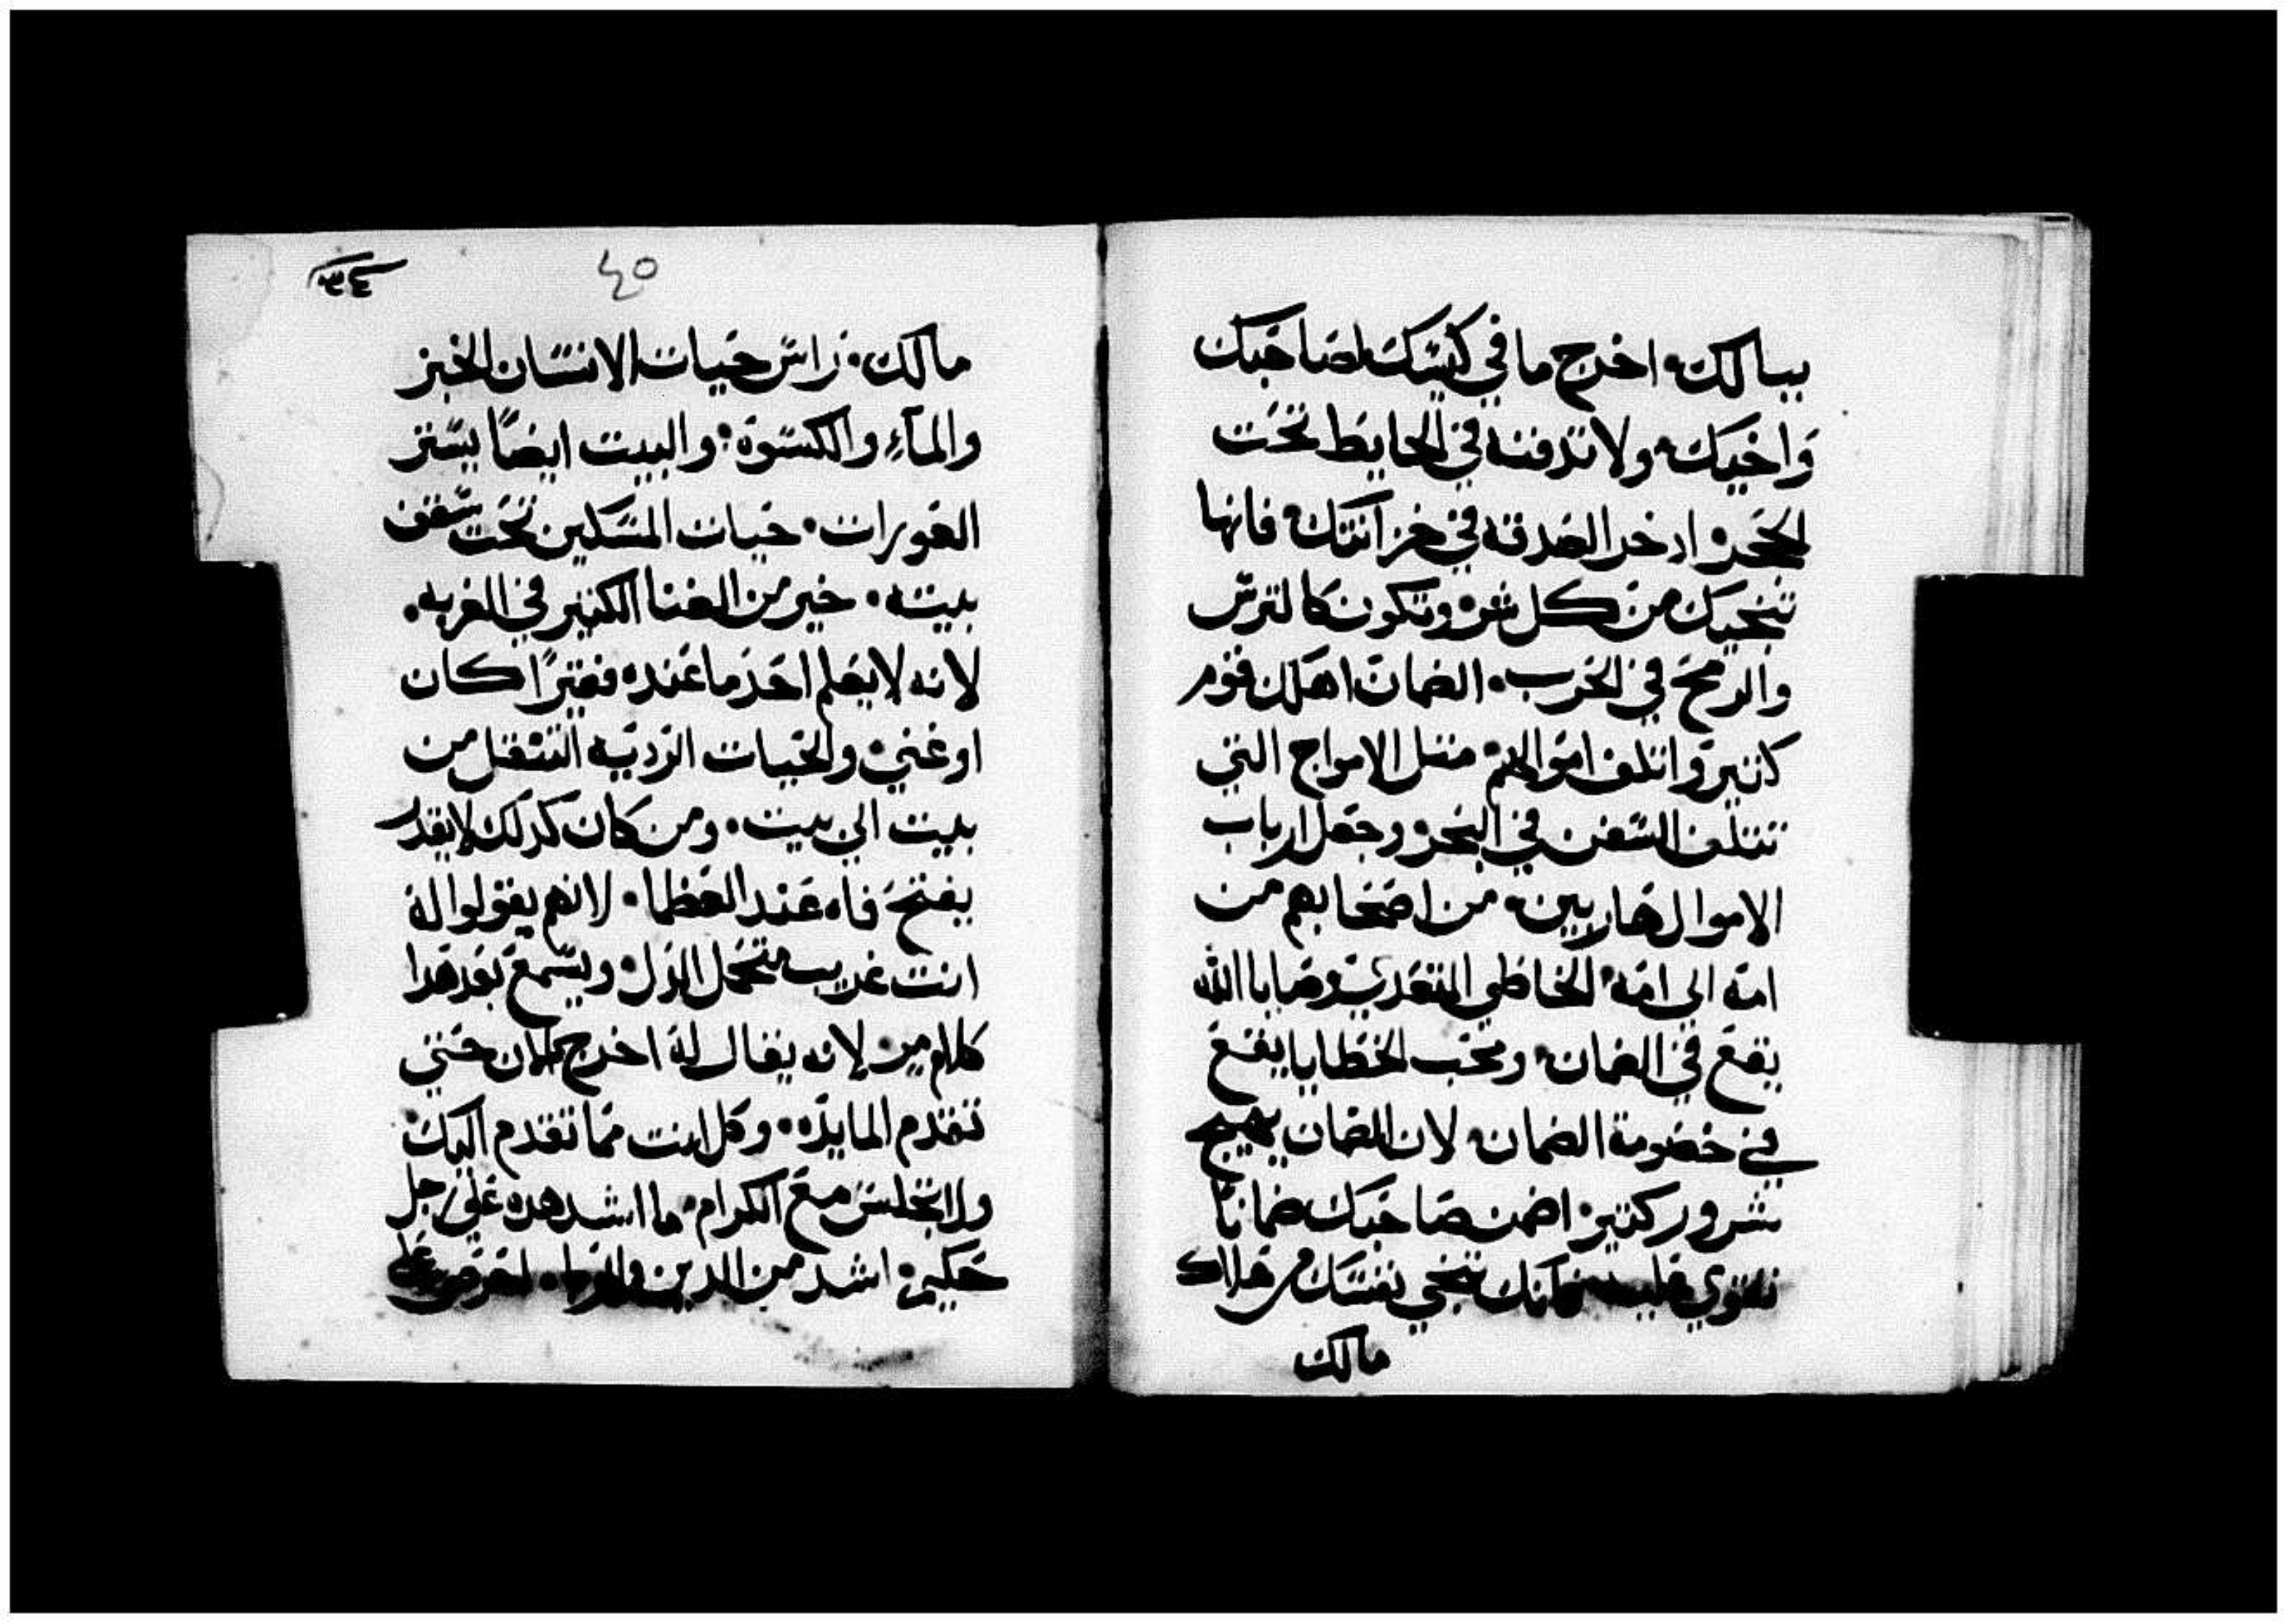 ببالك. اخرج ما في كيسك لصاحبك
واخيك. ولا تدفنه في الحايط تحت
الحجر. ادخل الصدقه في خزانتك. فانها
تنجيك من كل شر. وتكون كالترس
والرمح في الحرب. الضمان اهلك قوم
كثير واتلف اموالهم. مثل الامواج التي
تتلف السفن في البحر. وجعل ارباب
الاموال هاربين. من اصحابهم من
امه الى امه. الخاطي المتعدي وصايا الله
يقع في الضمان. ومحب الخطايا يقع
في خصومة الضمان. لان الضمان يهيج
شرور كتير. اضمن صاحبك ضمانا
تقوي قلبه ضمانك تنجي نفسك من هلاك
مالك
٣٤
٤٥
مالك. راس حيات الانسان الخبز
والمآء والكسوة. والبيت ايضًا يستر
العورات. حيات المسكين تحت سقف
بيته. خير من الغنا الكثير في الغربه.
لانه لا يعلم احد ما عنده فقيرًا كان
او غني. والحيات الرديه التنقل من
بيت الي بيت. ومن كان كدلك لا يقدر
يفتح فاه عند العظما. لانهم يقولوا له
انت غريب متحمل الدل. ويسمع بعد هدا
كلام مر. لانه يقال له اخرج الان حتي
تقدم المايده. وكل انت مما تقدم اليك.
ولا تجلس مع الكرام. ما اشد هده علي رجل
حكيم. اشد من الدين والربا. احرص علي